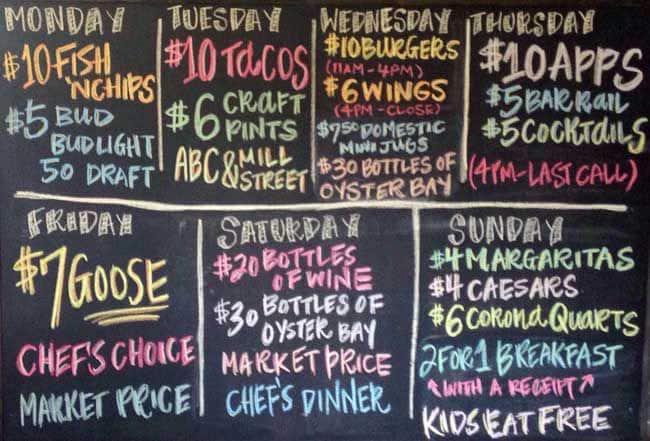 MONDAY
$10 FISH
'N CHIPS
$5 BUD
BUD LIGHT
50 DRAFT
TUESDAY
$10 TACOS
$6 CRAFT
PINTS
ABC & MILL
STREET
WEDNESDAY
$10 BURGERS
(11AM-4PM)
$6 WINGS
(4PM-CLOSE)
$7.50 DOMESTIC
MINI JUGS
$30 BOTTLES OF
OYSTER BAY
THURSDAY
$10 APPS
$5 BAR RAIL
$5 COCKTAILS
(4PM-LAST CALL)
FRIDAY
$7 GOOSE
CHEF'S CHOICE
MARKET PRICE
SATURDAY
$20 BOTTLES
OF WINE
$30 BOTTLES OF
OYSTER BAY
MARKET PRICE
CHEF'S DINNER
SUNDAY
$4 MARGARITAS
$4 CAESARS
$6 CORONA QUARTS
2 FOR 1 BREAKFAST
↑WITH A RECEIPT↗
KIDS EAT FREE